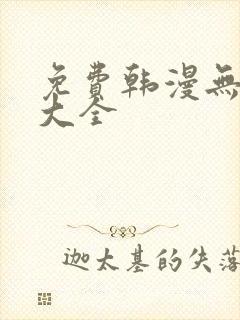 免費韩漫無
大全
迦太基的失落